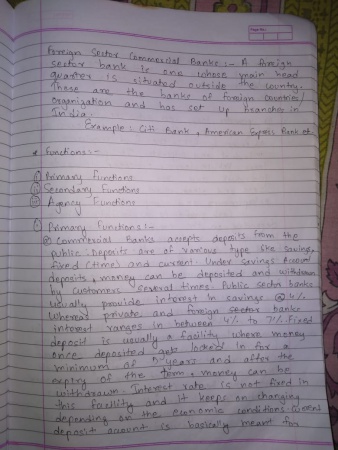 Page No.
Foreign Sector Commercial Banks :- A foreign
sector bank is one whose main head
quarter is situated outside the country.
These are the banks of foreign countries/
organization and has set up branches in
India.
Example : Citi Bank, American Express Bank etc.
* Functions :-
Primary Functions
Secondary Functions
Agency Functions
Primary Functions :-
Commercial Banks accepts deposits from the
public. Deposits are of various type like saving,
fixed (time) and current. Under savings account
deposits, money can be deposited and withdrawn
by customers several times. Public sector banks
usually provide interest in savings @ 4%
whereas private and foreign sector banks
interest ranges in between 4% to 7%. Fixed
deposit is usually a facility where money
once deposited gets locked in for a
minimum of years and after the
expiry of the term, money can be
withdrawn. Interest rate is not fixed in
this facility and it keeps on changing
depending on the economic conditions. Current
deposit account is basically meant for